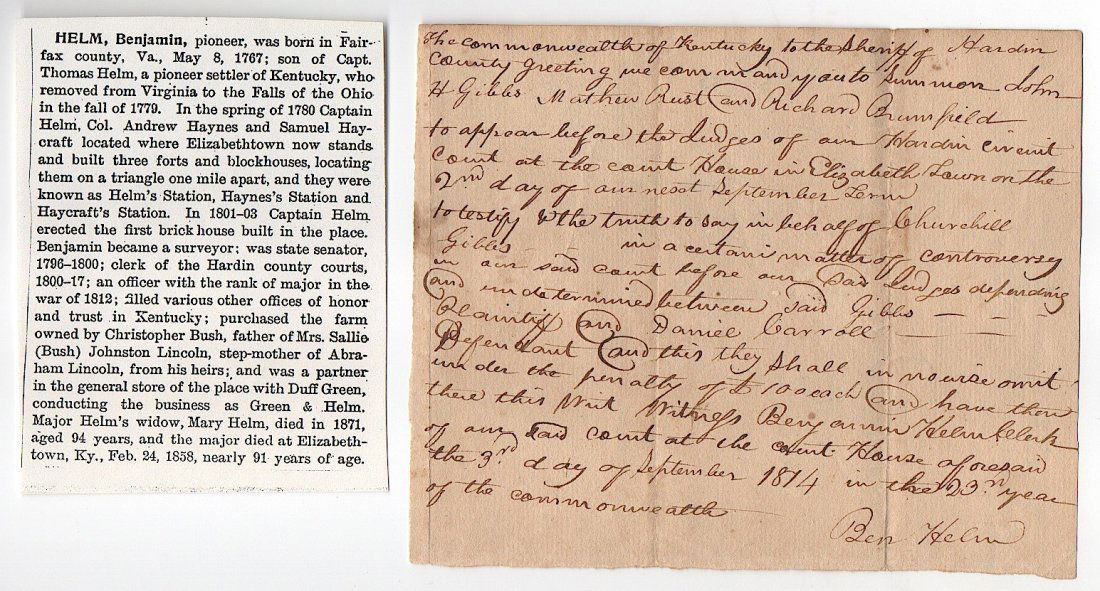 HELM, Benjamin, pioneer, was born in Fair-
fax county, Va., May 8, 1767; son of Capt.
Thomas Helm, a pioneer settler of Kentucky, who
removed from Virginia to the Falls of the Ohio
in the fall of 1779. In the spring of 1780 Captain
Helm, Col. Andrew Haynes and Samuel Hay-
craft located where Elizabethtown now stands
and built three forts and blockhouses, locating
them on a triangle one mile apart, and they were
known as Helm's Station, Haynes's Station and
Haycraft's Station. In 1801-03 Captain Helm
erected the first brick house built in the place.
Benjamin became a surveyor; was state senator,
1796-1800; clerk of the Hardin county courts,
1800-17; an officer with the rank of major in the
war of 1812; filled various other offices of honor
and trust in Kentucky; purchased the farm
owned by Christopher Bush, father of Mrs. Sallie
(Bush) Johnston Lincoln, step-mother of Abra-
ham Lincoln, from his heirs; and was a partner
in the general store of the place with Duff Green,
conducting the business as Green & Helm.
Major Helm's widow, Mary Helm, died in 1871,
aged 94 years, and the major died at Elizabeth-
town, Ky., Feb. 24, 1858, nearly 91 years of age.
The commonwealth of Kentucky to the Sheriff of Hardin
County greeting we command you to summon John
H Gibbs Mathew Rust and Richard Brumfield
to appear before the Judges of our Hardin circuit
Court at the court House in Elizabeth Town on the
2nd day of our next September Term
to testify & the truth to say in behalf of Churchill
Gibbs in a certain matter of controversy
in our said court before our said Judges depending
and undetermined between said Gibbs
Plaintiff and Daniel Carroll
Defendant and this they shall in nowise omit
under the penalty of £ 100 each and have then
there this Writ Witness Benjamin Helm Clerk
of our said court at the court House aforesaid
the 3rd day of September 1814 in the 23rd year
of the commonwealth
Ben Helm